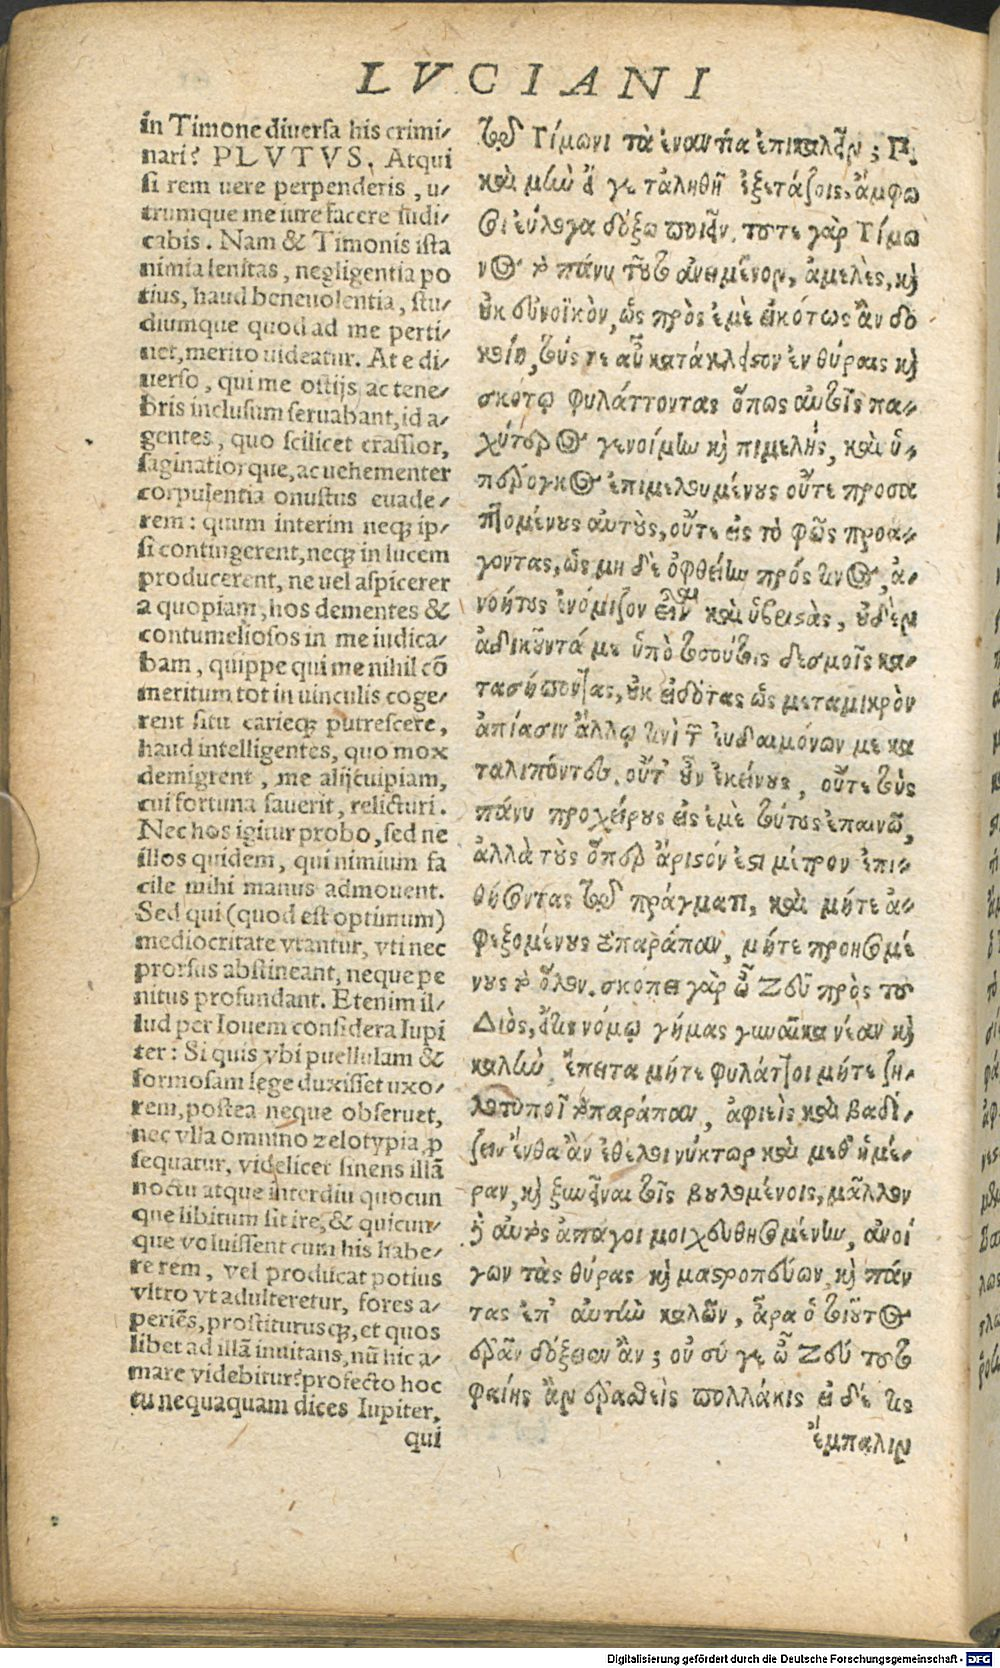 LVCIANI
in Timone diuersa his crimi-
nari? PLVTVS. Atqui
si rem uere perpenderis, u-
trumque me iure facere iudi-
cabis. Nam & Timonis ista
nimia lenitas, negligentia po
tius, haud beneuolentia, stu-
diumque quod ad me perti-
net, merito uideatur. At e di-
uerso, qui me ostijs ac tene-
bris inclusum seruabant, id a-
gentes, quo scilicet crassior,
saginatiorque, ac uehementer
corpulentia onustus euade-
rem: quum interim neq; ip-
si contingerent, neq; in lucem
producerent, ne uel aspicerer
a quopiam, hos dementes &
contumeliosos in me iudica-
bam, quippe qui me nihil cō
meritum tot in uinculis coge-
rent situ carieq; putrescere,
haud intelligentes, quo mox
demigrent, me alij cuipiam,
cui fortuna fauerit, relicturi.
Nec hos igitur probo, sed ne
illos quidem, qui nimium fa
cile mihi manus admouent.
Sed qui (quod est optimum)
mediocritate vtantur, vti nec
prorsus abstineant, neque pe
nitus profundant. Etenim il-
lud per Iouem considera Iupi
ter: Si quis vbi puellulam &
formosam lege duxisset uxo-
rem, postea neque obseruet,
nec vlla omnino zelotypia p
sequatur, videlicet sinens illā
noctu atque interdiu quocun
que libitum sit ire, & quicun-
que voluissent cum his habe-
re rem, vel producat potius
vltro vt adulteretur, fores a-
periēs, prostiturusq;, et quos
libet ad illā inuitans, nū hic a-
mare videbitur? profecto hoc
tu nequaquam dices Iupiter,
qui
τοῦ Τίμωνι τὰ ἐναντία ἐπικαλεῖν; Π.
καὶ μὴν εἴ γε τἀληθῆ ἐξετάζοις, ἄμφω
σοι εὔλογα δόξω ποιεῖν. τοτε γὰρ Τίμω
νος τὸ πάνυ τοῦτο ἀνειμένον, ἀμελὲς, καὶ
οὐκ εὐνοϊκὸν, ὡς πρὸς ἐμὲ εἰκότως ἂν δο
κοίη, τούς τε αὖ κατάκλειστον ἐν θύραις καὶ
σκότῳ φυλάττοντας ὅπως αὐτοῖς πα-
χύτερος γενοίμην καὶ πιμελὴς, καὶ ὑ-
πέρογκος ἐπιμελουμένους οὔτε προσα
πτομένους αὐτοὺς, οὔτε εἰς τὸ φῶς προα-
γοντας, ὡς μη δὲ ὀφθείην πρός τινος, ἀ-
νοήτους ἐνόμιζον εἶναι καὶ ὑβριστὰς, οὐδὲν
ἀδικοῦντά με ὑπὸ τοσούτοις δεσμοῖς κα-
τασήποντας, οὐκ εἰδότας ὡς μεταμικρὸν
ἀπίασιν ἄλλῳ τινὶ τῶν εὐδαιμόνων με κα
ταλιπόντες. οὔτ' οὖν ἐκείνους, οὔτε τοὺς
πάνυ προχείρους εἰς ἐμὲ τούτους ἐπαινῶ,
ἀλλὰ τοὺς ὅπερ ἄριστόν ἐστι μέτρον ἐπι-
θήσοντας τοῦ πράγματι, καὶ μήτε ἀ-
φεξομένους τὸ παράπαν, μήτε προησομέ
νους τὸ ὅλον. σκόπει γὰρ ὦ Ζεῦ πρὸς τοῦ
Διὸς, εἴ τις νόμῳ γήμας γυναῖκα νέαν καὶ
καλὴν, ἔπειτα μήτε φυλάττοι μήτε ζη-
λοτυποῖ τὸ παράπαν, ἀφιεὶς καὶ βαδί-
ζειν ἔνθα ἂν ἐθέλοι νύκτωρ καὶ μεθ' ἡμέ-
ραν, καὶ ξυνεῖναι τοῖς βουλομένοις, μᾶλλον
ἢ αὐτὸς ἀπάγοι μοιχευθησομένην, ἀνοί
γων τὰς θύρας καὶ μαστροπεύων, καὶ πάν
τας ἐπ' αὐτὴν καλῶν, ἆρα ὁ τοιοῦτος
ἐρᾶν δόξειεν ἄν; οὐ σύ γε ὦ Ζεῦ τοῦτο
φαίης ἂν ἐρασθεὶς πολλάκις εἰ δέ τις
ἔμπαλιν
Digitalisierung gefördert durch die Deutsche Forschungsgemeinschaft - DFG